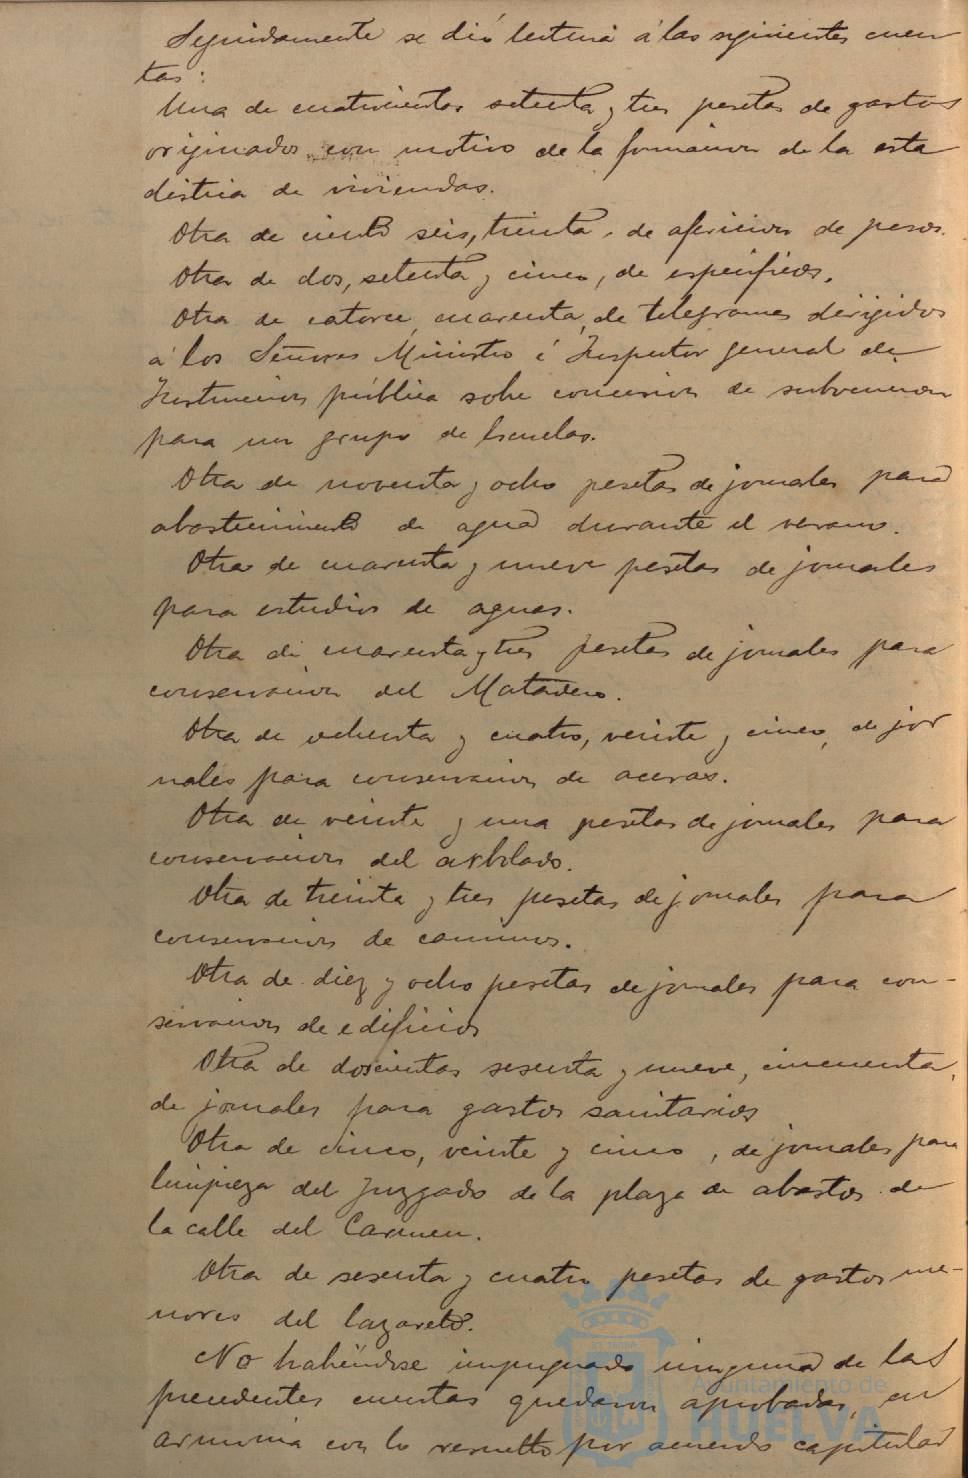 Seguidamente se dió lectura á las siguientes cuen
tas:
Una de cuatrocientas setenta y tres pesetas de gastos
originados con motivo de la formacion de la esta
distica de viviendas.
Otra de ciento seis, treinta, de afericion de pesos.
Otra de dos, setenta y cinco, de especificos.
Otra de catorce, cuarenta, de telegramas dirigidos
á los Señores Ministro é Inspector general de
Instruccion pública sobre concesion de subvencion
para un grupo de Escuelas.
Otra de noventa y ocho pesetas de jornales para
abastecimiento de agua durante el verano.
Otra de cuarenta y nueve pesetas de jornales
para estudios de aguas.
Otra de cuarenta y tres pesetas de jornales para
conservacion del Matadero.
Otra de ochenta y cuatro, veinte y cinco, de jor
nales para conservacion de aceras.
Otra de veinte y una pesetas de jornales para
conservacion del arbolado.
Otra de treinta y tres pesetas de jornales para
conservacion de caminos.
Otra de diez y ocho pesetas de jornales para con-
servacion de edificios
Otra de doscientas sesenta y nueve, cincuenta,
de jornales para gastos sanitarios
Otra de cinco, veinte y cinco, de jornales para
limpieza del Juzgado de la plaza de abastos de
la calle del Carmen.
Otra de sesenta y cuatro pesetas de gastos me-
nores del lazareto.
No habiéndose impugnado ninguna de las
precedentes cuentas quedaron aprobadas, en
armonia con lo resuelto por acuerdo capitular
Ayuntamiento de
HUELVA